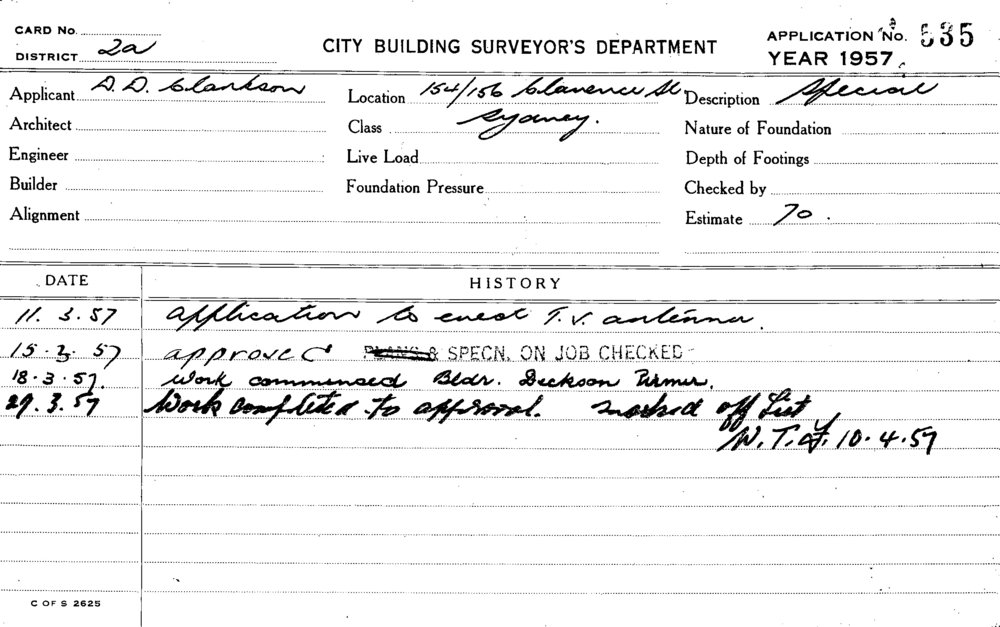 CARD No.
DISTRICT 2a
CITY BUILDING SURVEYOR'S DEPARTMENT
APPLICATION No. 535
YEAR 1957
Applicant D. D. Clarkson
Location 154/156 Clarence St.
Sydney.
Description Special
Architect
Class
Nature of Foundation
Engineer
Live Load
Depth of Footings
Builder
Foundation Pressure
Checked by
Alignment
Estimate 70.
DATE HISTORY
11. 3. 57 application to erect T.V. antenna.
15. 3. 57 approved & SPECN. ON JOB CHECKED
18. 3. 57. Work commenced Bldr.
29. 3. 57 Work completed to approval. marked off List
10. 4. 57
C OF S 2625